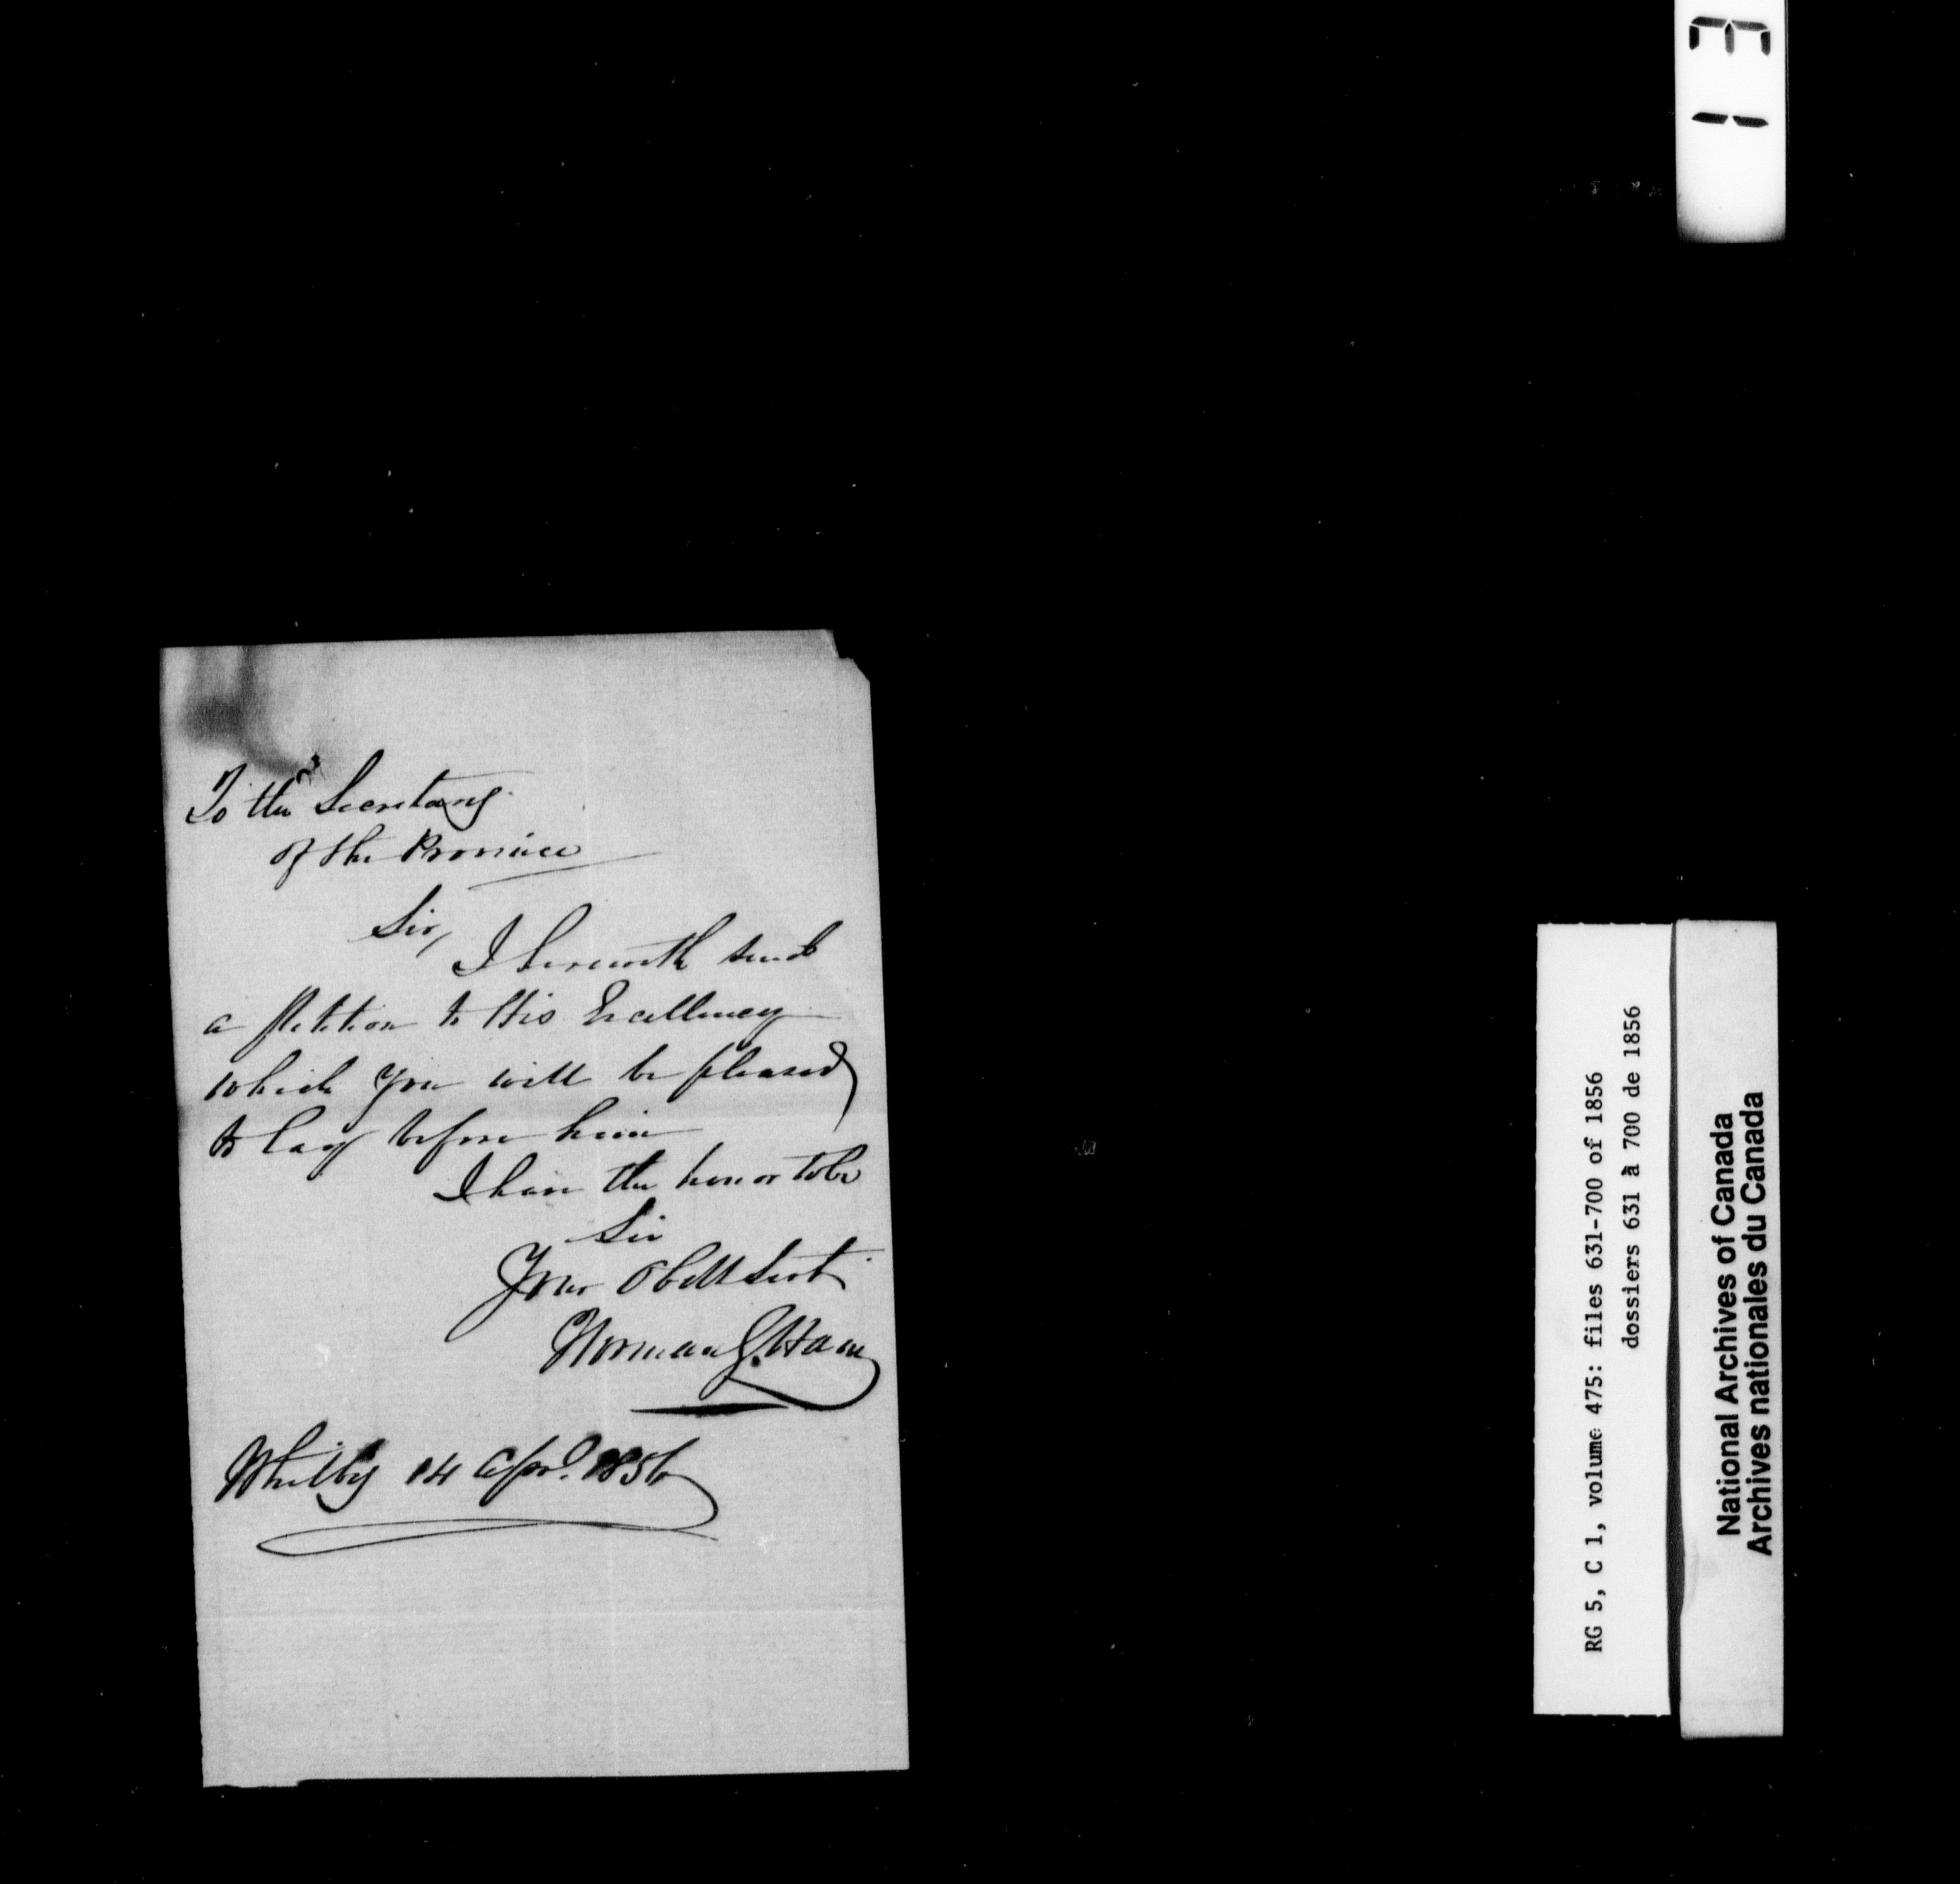 To the Secretary
of the Province
Sir,
I herewith send
a Petition to His Excellency
which you will be pleased
to lay before him
I have the honor to be
Sir
Your Obdt Servt
Norman G. Ham
Whitby 14 Apl. 1856
RG 5, C 1, volume 475: files 631-700 of 1856
dossiers 631 à 700 de 1856
National Archives of Canada
Archives nationales du Canada